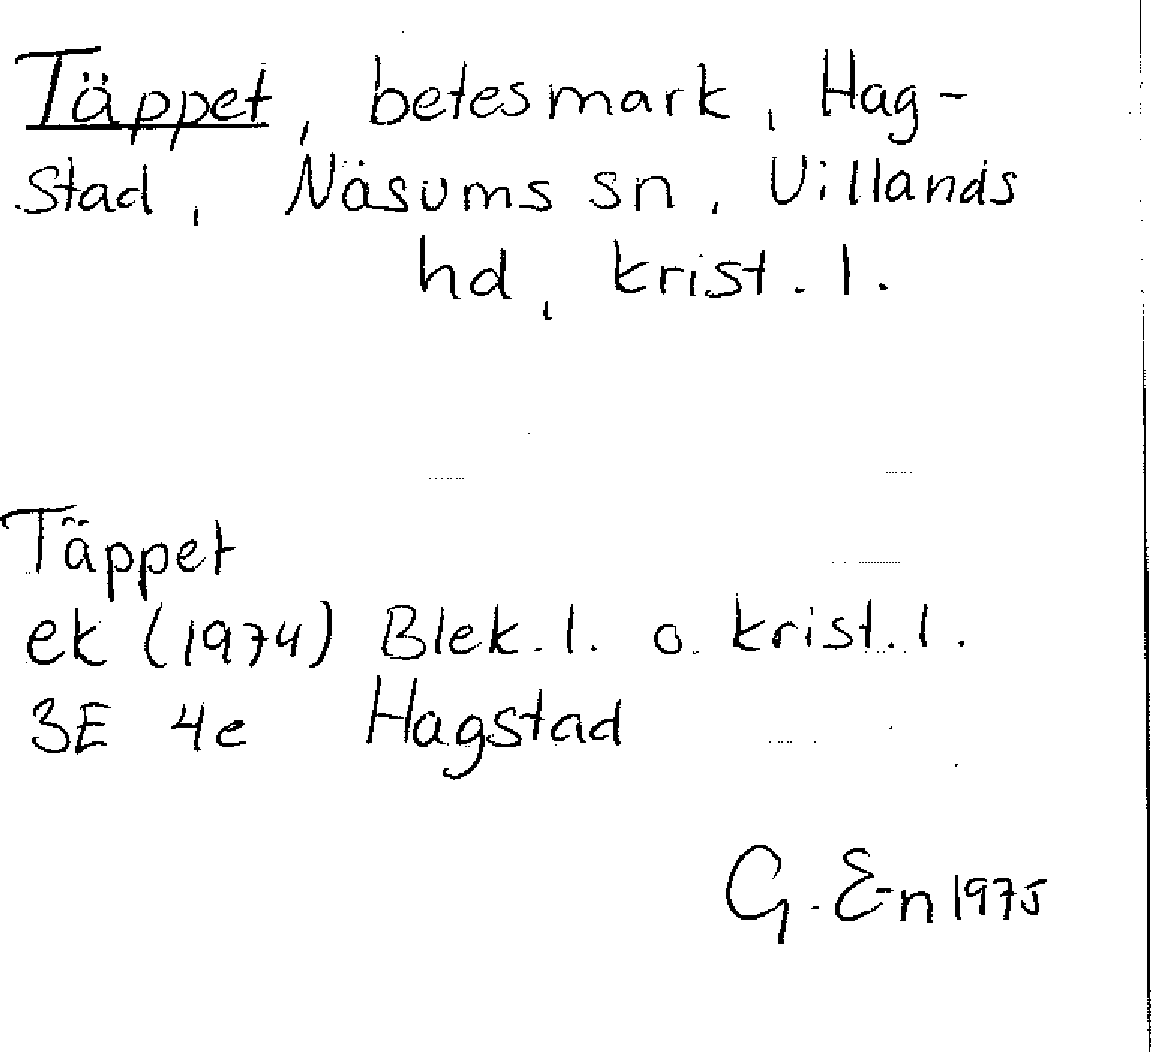 Täppet, betesmark, Hag-
stad, Näsums sn, Villands
hd, krist. l.
Täppet
ek (1974) Blek. l. o. krist. l.
3E 4e Hagstad
G. En 1975